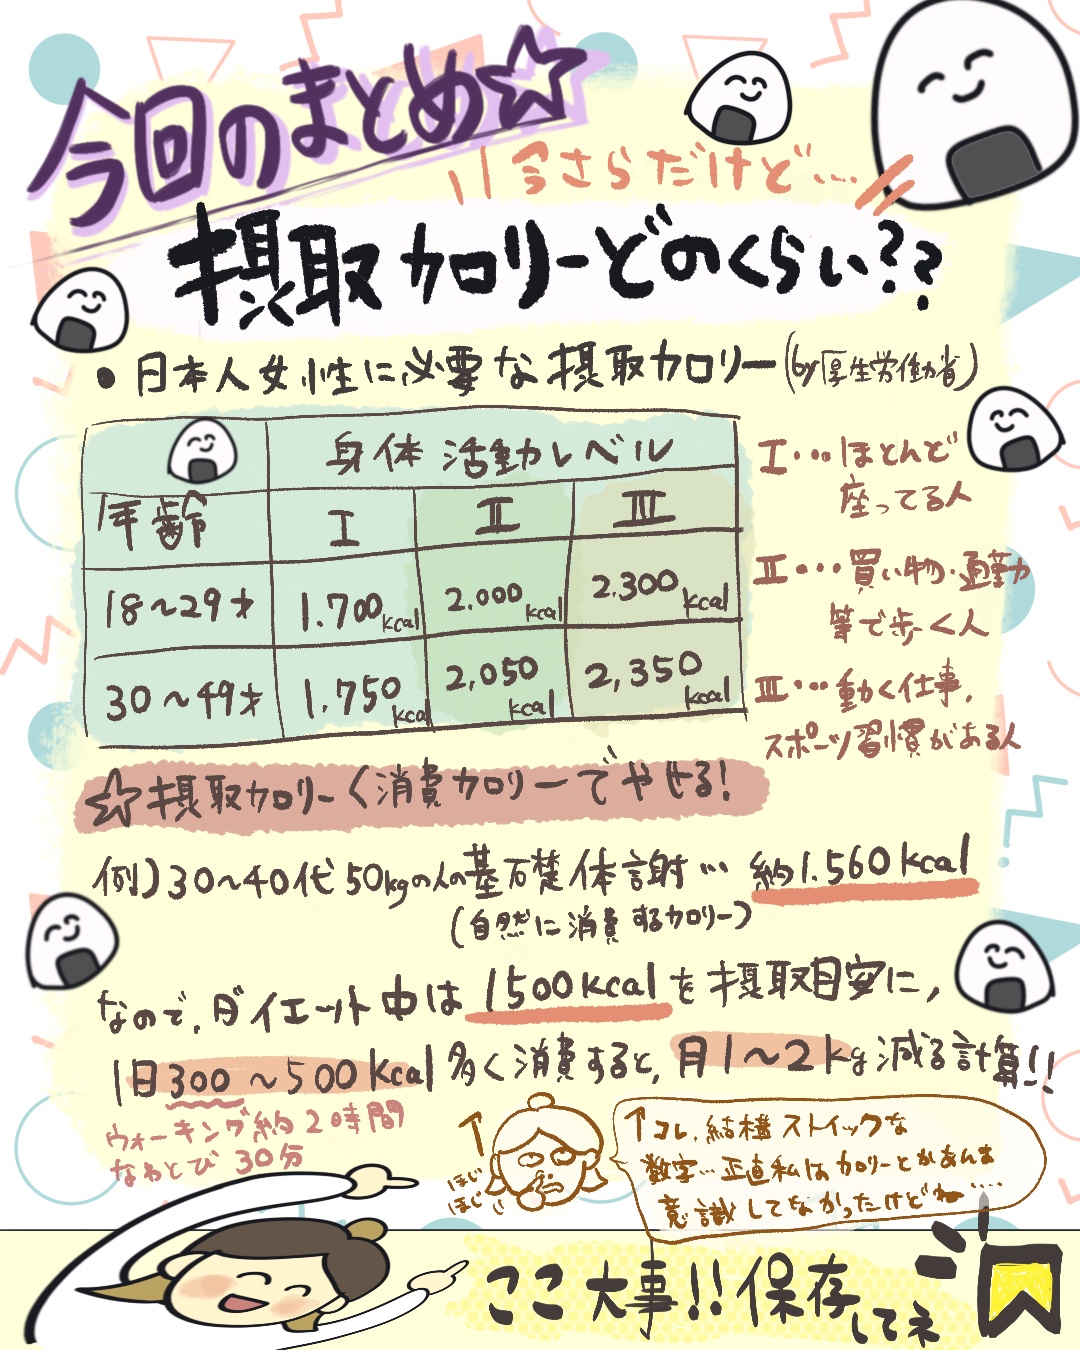 今回のまとめ☆
今さらだけど…
摂取カロリーどのくらい??
●日本人女性に必要な摂取カロリー(by厚生労働省)
身体活動レベル
年齢 I II III
18〜29才 1.700kcal 2.000kcal 2.300kcal
30〜49才 1.750kcal 2,050kcal 2,350kcal
I…ほとんど
座ってる人
II…買い物・通勤
等で歩く人
III…動く仕事,
スポーツ習慣がある人
☆摂取カロリー<消費カロリーでやせる!
例)30〜40代50kgの人の基礎体謝… 約1.560kcal
(自然に消費するカロリー)
なので,ダイエット中は1500kcalを摂取目安に,
1日300〜500kcal多く消費すると,月1〜2kg減る計算!!
ウォーキング約2時間
なわとび30分
ほじ
ほじ
↑コレ,結構ストイックな
数字…正直私はカロリーとかあんま
意識してなかったけどね…
ここ大事!!保存してネ